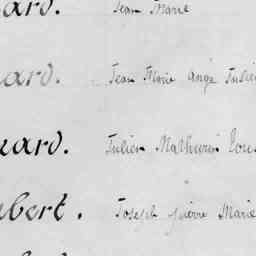 ard. Jean Marie
ard. Jean Marie Ange Julien
uard. Julien Mathurin Louis
bert. Joseph Pierre Marie